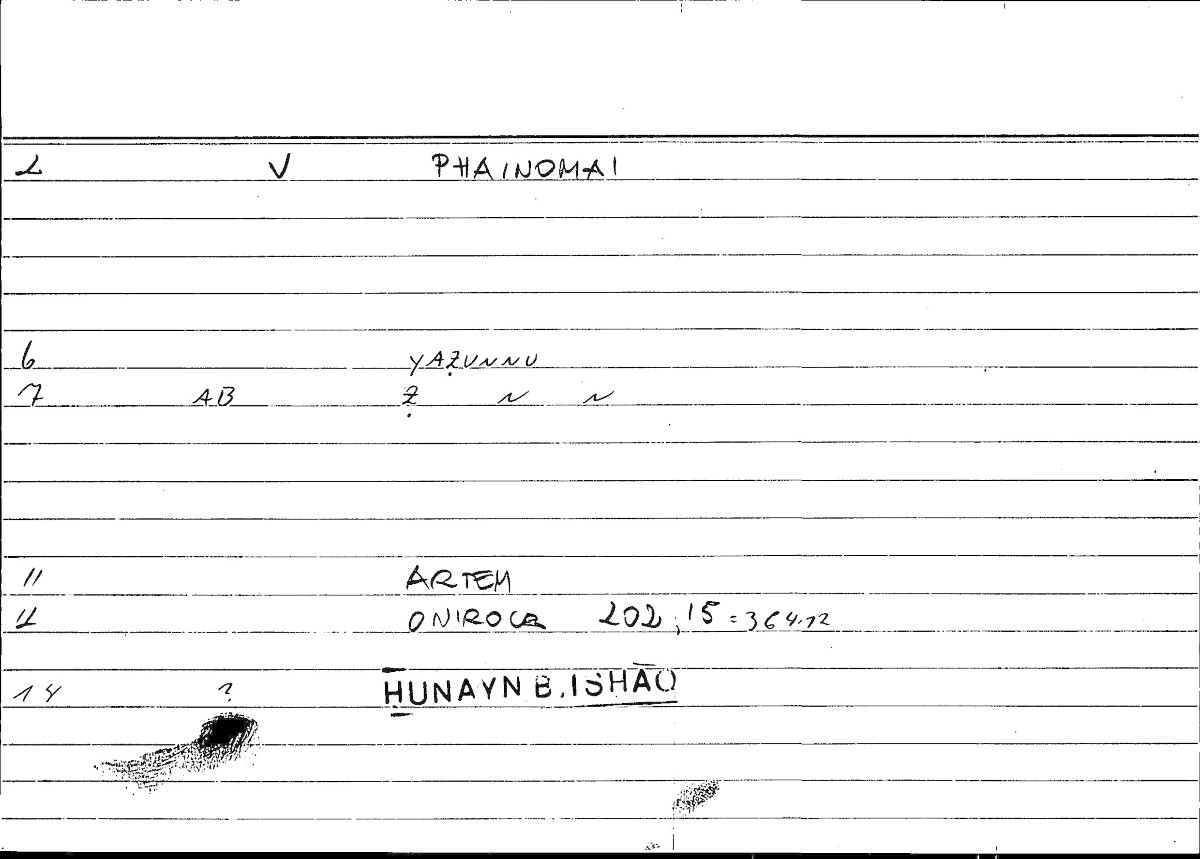 2 V PHAINOMAI
6 YAẒUNNU
7 AB Ẓ N N
11 ARTEM
12 ONIROCR 202,15 = 364.12
14 ? ḤUNAYN B. ISḤĀQ